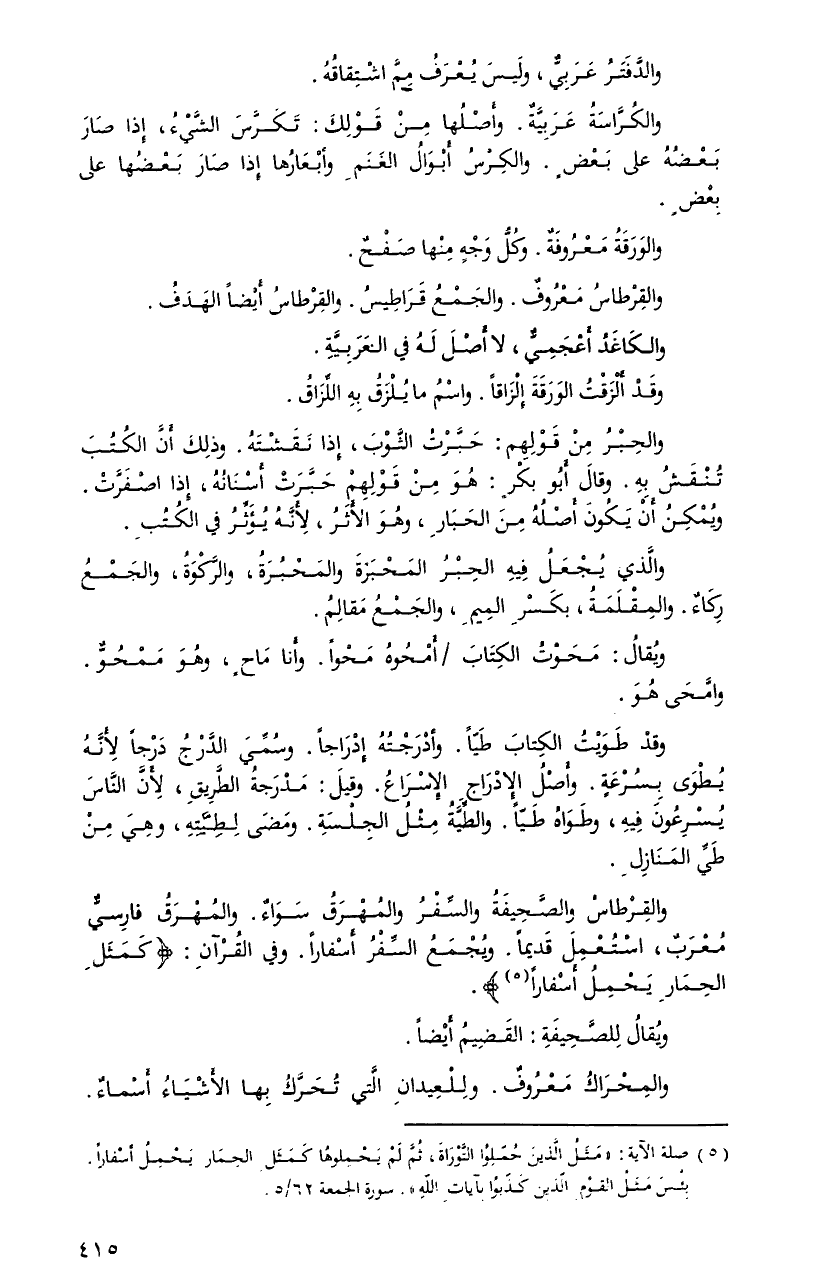 والدَّفْتَرُ عَرَبِيٌّ ، ولَيسَ يُعْرَفُ مِمَّ اشْتِقاقُهُ .
والكُرَّاسَةُ عَرَبِيَّةٌ . وأَصْلُها مِنْ قَوْلِكَ : تَكَرَّسَ الشَّيْءُ ، إذا صَارَ
بَعْضُهُ على بَعْضٍ . والكِرْسُ أَبْوَالُ الغَنَمِ وأبْعَارُها إذا صَارَ بَعْضُها على
بعْضٍ .
والوَرَقَةُ مَعْرُوفَةٌ . وكُلُّ وَجْهٍ مِنْها صَفْحٌ .
والقِرْطاسُ مَعْرُوفٌ . والجَمْعُ قَرَاطِيسُ . والقِرْطاسُ أَيْضاً الهَدَفُ .
والكَاغَدُ أَعْجَمِيٌّ ، لا أَصْلَ لَهُ في العَرَبِيَّةِ .
وقَدْ أَلْزَقْتُ الوَرَقَةَ إلْزَاقاً . واسْمُ ما يُلْزَقُ بِهِ اللِّزَاقُ .
والحِبْرُ مِنْ قَوْلِهِم : حَبَّرْتُ الثَّوْبَ ، إذَا نَقَشْتَهُ . وذلِكَ أَنَّ الكُتُبَ
تُنْقَشُ بِهِ . وقالَ أَبُو بكْرٍ : هُوَ مِنْ قَوْلِهِمْ حَبَّرَتْ أَسْنَانُهُ ، إذَا اصْفَرَّتْ .
ويُمْكِنُ أَنْ يَكُونَ أَصْلُهُ مِنَ الحَبَارِ ، وهُوَ الأَثَرُ ، لِأَنَّهُ يُؤَثِّرُ في الكُتُبِ .
والَّذي يُجْعَلُ فِيهِ الحِبْرُ المَحْبَرَةَ والمَحْبُرَةُ ، والرَّكْوَةُ ، والجَمْعُ
رِكَاءٌ . والمِقْلَمَةُ ، بكَسْرِ المِيمِ ، والجَمْعُ مَقالِمُ .
ويُقالُ : مَحَوْتُ الكِتَابَ / أَمْحُوهُ مَحْواً . وأَنا مَاحٍ ، وهُوَ مَمْحُوٌّ .
وامَّحَى هُوَ .
وقدْ طَوَيْتُ الكِتابَ طَيّاً . وأدْرَجْتُهُ إدْرَاجاً . وسُمِّيَ الدَّرْجُ دَرْجاً لِأَنَّهُ
يُطْوَى بِسُرْعَةٍ . وأَصْلُ الإدْرَاجِ الإسْرَاعُ . وقيلَ : مَدْرَجَةُ الطَّرِيقِ ، لِأَنَّ النَّاسَ
يُسْرِعُونَ فِيهِ ، وطَوَاهُ طَيّاً . والطِّيَّةُ مِثْلُ الجِلْسَةِ . ومَضَى لِطِيَّتِهِ ، وهِيَ مِنْ
طَيِّ المَنَازِلِ .
والقِرْطاسُ والصَّحِيفَةُ والسِّفْرُ والمُهْرَقُ سَوَاءٌ . والمُهْرَقُ فارِسِيٌّ
مُعْرَبٌ ، اسْتُعْمِلَ قَدِيماً . ويُجْمَعُ السِّفْرُ أَسْفاراً . وفي القُرْآنِ : ﴿ كَمَثَلِ
الحِمَارِ يَحْمِلُ أَسْفاراً(٥) ﴾ .
ويُقالُ لِلصَّحِيفَةِ : القَضِيمُ أَيْضاً .
والمِحْرَاكُ مَعْرُوفٌ . ولِلْعِيدانِ الَّتي تُحَرَّكُ بِها الأَشْيَاءُ أَسْماءٌ .
( ٥ ) صلة الآية : « مَثَلُ الَّذينَ حُمِّلِوُا التَّوْرَاةَ ، ثُمَّ لَمْ يَحْملوهَا كَمَثَلِ الحِمَارِ يَحْمِلُ أسْفاراً .
بِئْسَ مَثَلُ القَوْمِ الَّذين كَذَّبوُا بآيَاتِ اللهِ » . سورة الجمعة ٥/٦٢ .
٤١٥